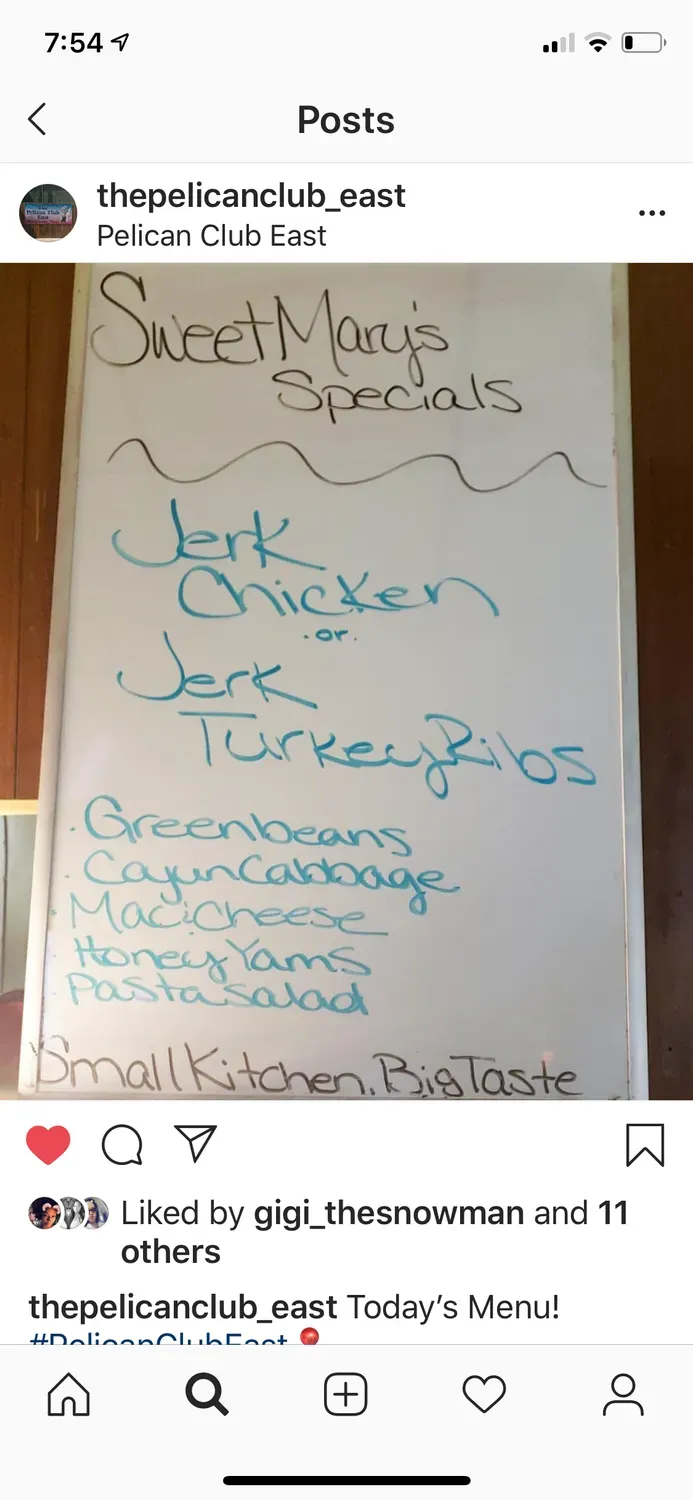 7:54
Posts
thepelicanclub_east
Pelican Club East
Sweet Mary's
Specials
Jerk
Chicken
.or.
Jerk
Turkey Ribs
. Greenbeans
. Cajun Cabbage
. Mac:Cheese
Honey Yams
Pasta Salad
Small Kitchen. Big Taste
Liked by gigi_thesnowman and 11
others
thepelicanclub_east Today's Menu!
#PelicanClubEast